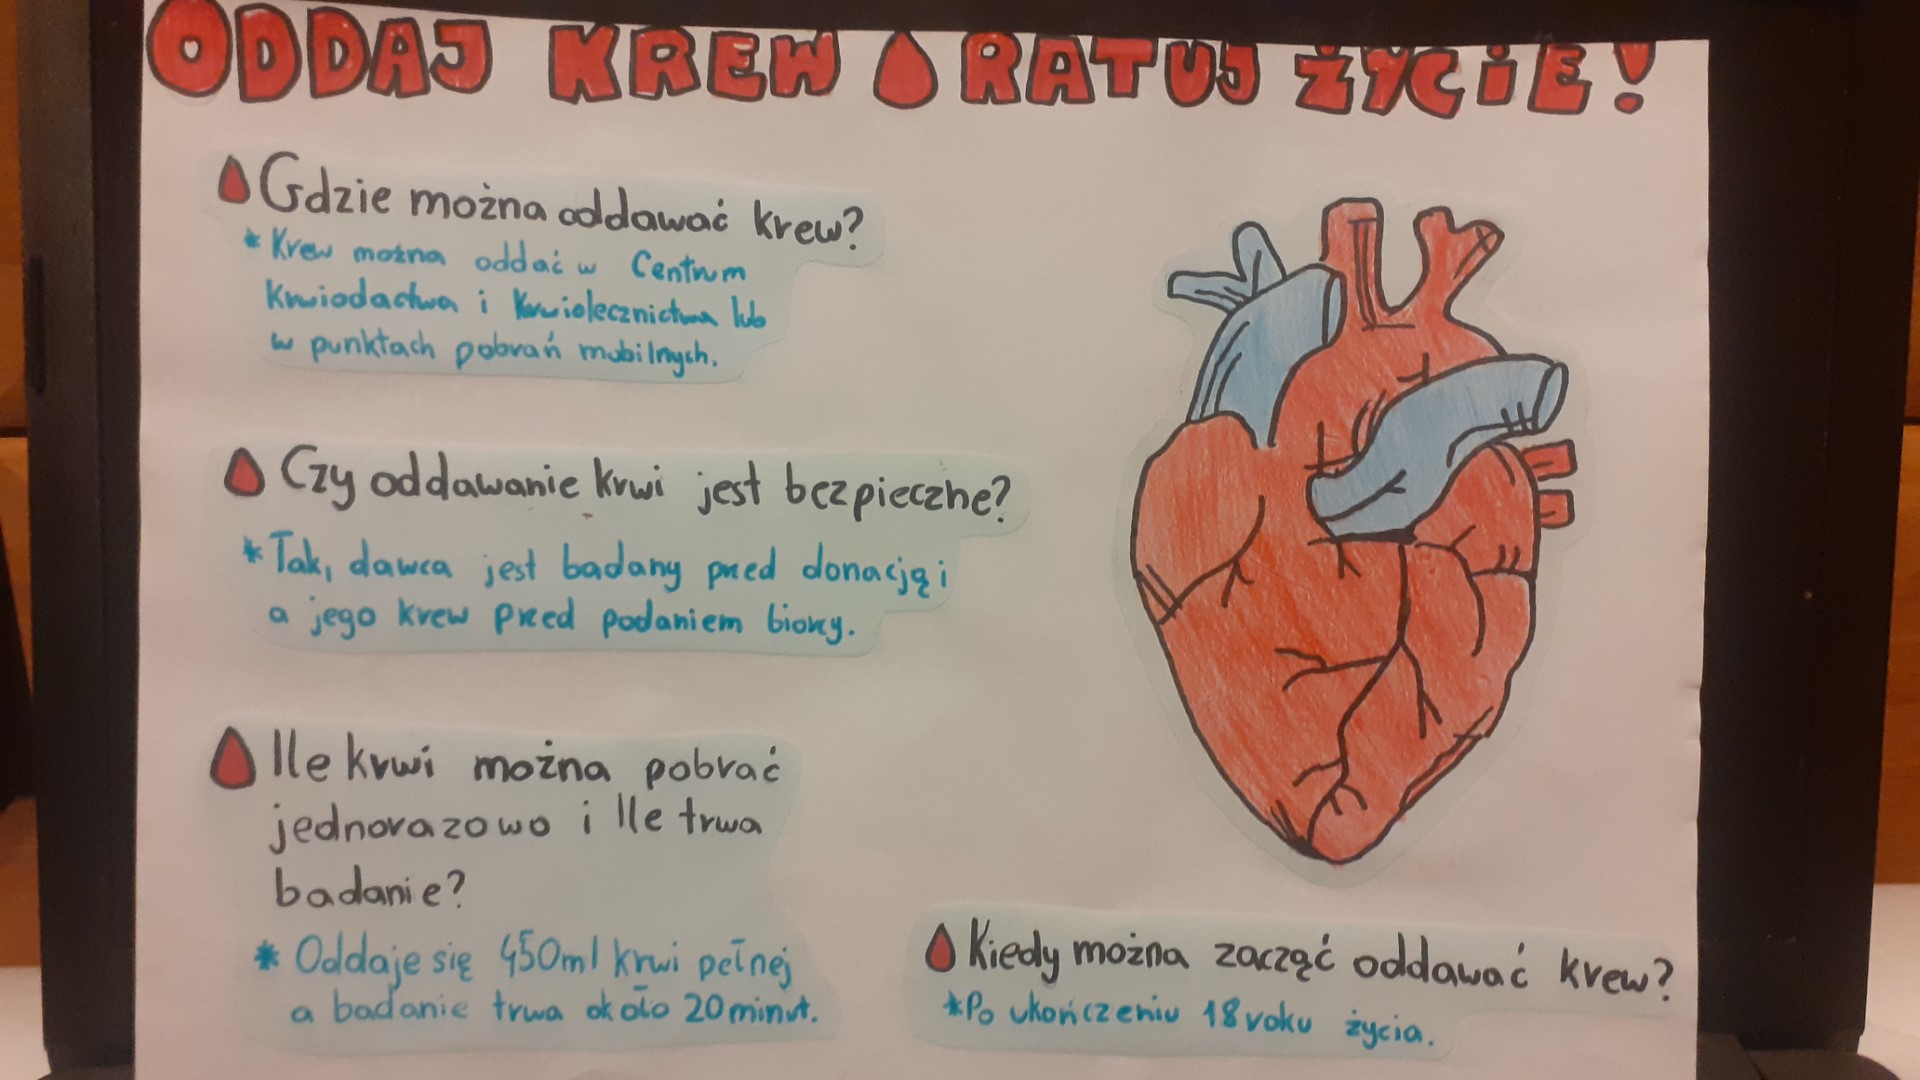 ODDAJ KREW RATUJ ŻYCIE!
Gdzie można oddawać krew?
* Krew można oddać w Centrum
Krwiodactwa i Krwiolecznictwa lub
w punktach pobrań mobilnych.
Czy oddawanie krwi jest bezpieczne?
* Tak, dawca jest badany przed donacją i
a jego krew przed podaniem biorcy.
Ile krwi można pobrać
jednorazowo i Ile trwa
badanie?
* Oddaje się 450ml krwi pełnej
a badanie trwa około 20 minut.
Kiedy można zacząć oddawać krew?
* Po ukończeniu 18 roku życia.